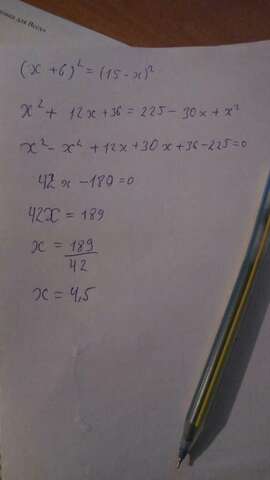 для
(x + 6)² = (15 - x)²
x² + 12x + 36 = 225 - 30x + x²
x² - x² + 12x + 30x + 36 - 225 = 0
42x - 189 = 0
42x = 189
x = 189/42
x = 4,5